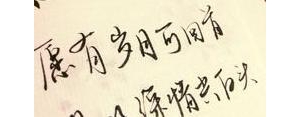 愿有岁月可回首
深情共白头